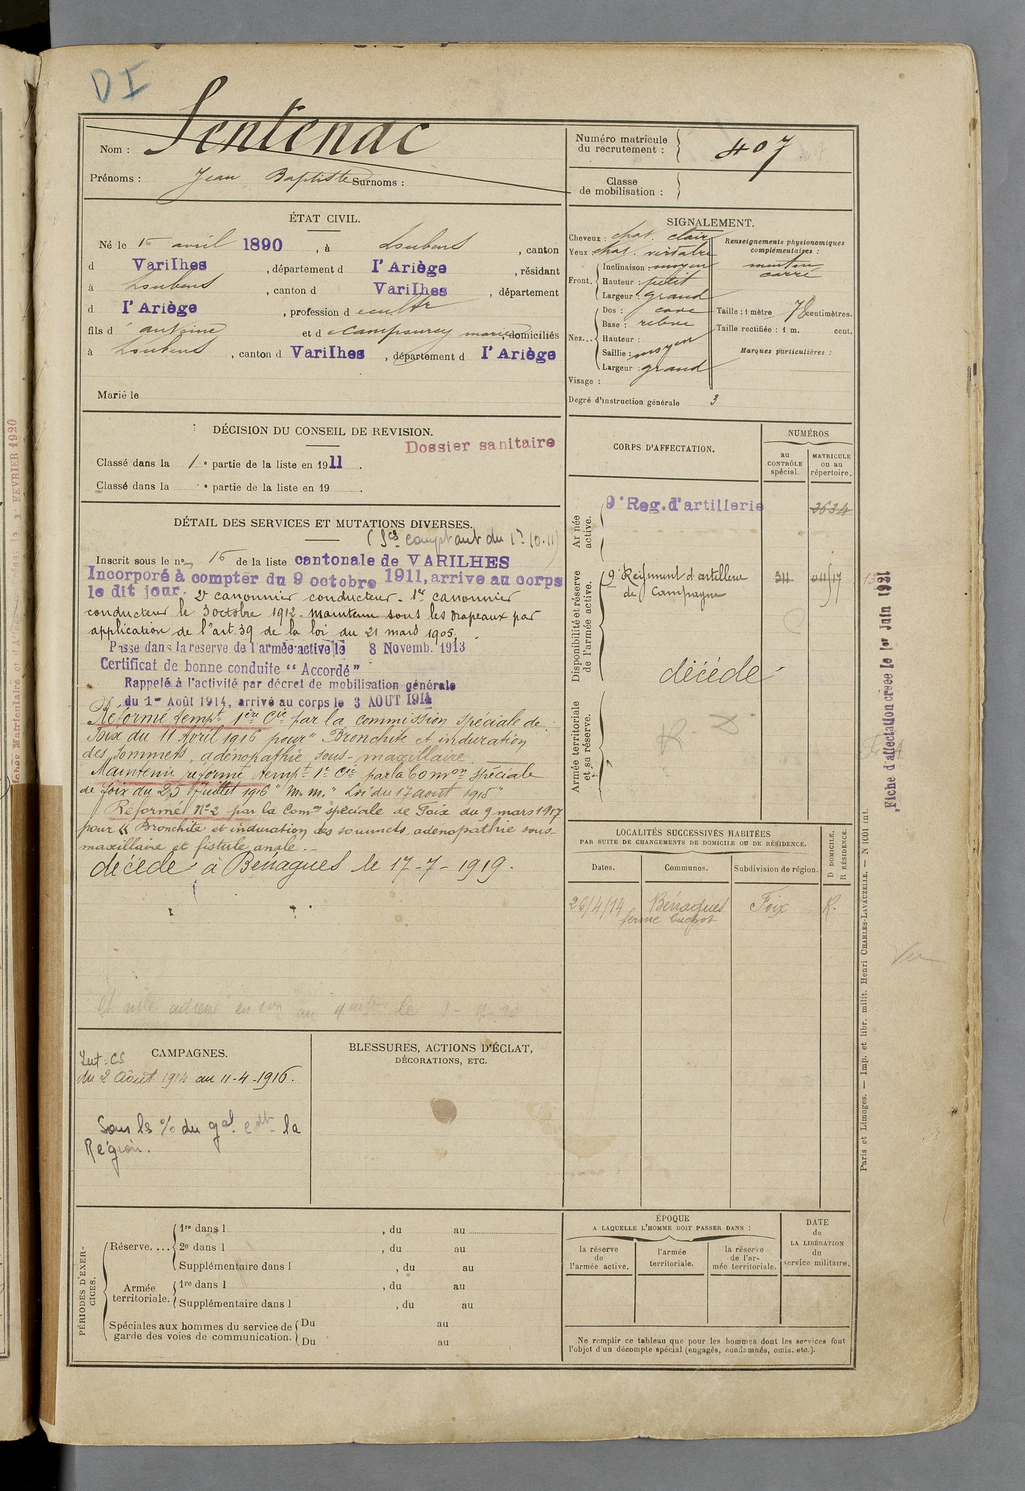 DI
Nom : Sentenac
Prénoms : Jean Baptiste Surnoms :
Numéro matricule du recrutement : 407
Classe de mobilisation :
ÉTAT CIVIL.
Né le 15 avril 1890, à Loubens, canton
d Varilhes, département d l'Ariège, résidant
à Loubens, canton d Varilhes, département
d l'Ariège, profession d cultr
fils d' antoine et d domiciliés
à Loubens, canton d Varilhes, département d l'Ariège
Marié le
SIGNALEMENT.
Cheveux : chat. clair
Yeux chat. verdatre
Front. Inclinaison : moyen
Hauteur : petit
Largeur : grand
Nez... Dos : cave
Base : relevé
Hauteur :
Saillie : moyen
Largeur : grand
Visage :
Degré d'instruction générale 3
Renseignements physionomiques complémentaires :
menton
carré
Taille : 1 mètre centimètres.
Taille rectifiée : 1 m. cent.
Marques particulières :
DÉCISION DU CONSEIL DE REVISION.
Dossier sanitaire
Classé dans la 1e partie de la liste en 1911.
Classé dans la e partie de la liste en 19 .
DÉTAIL DES SERVICES ET MUTATIONS DIVERSES.
(Ses comptant du 1er 10.11)
Inscrit sous le no 15 de la liste cantonale de VARILHES
Incorporé à compter du 9 octobre 1911, arrive au corps
le dit jour. 2e canonnier conducteur. 1er canonnier
conducteur le 3 octobre 1912. maintenu sous les drapeaux par
application de l'art. 39 de la loi du 21 mars 1905.
Passe dans la reserve de l'armée active le 8 Novemb. 1913
Certificat de bonne conduite "Accordé"
Rappelé à l'activité par décret de mobilisation générale
du 1er Août 1914, arrivé au corps le 3 AOUT 1914
Réformé tempt 1ère Cie par la commission spéciale de
Foix du 11 Avril 1916 pour " Bronchite et induration
des sommets, adénopathie sous-maxillaire
Maintenu réformé temp t 1e Cie par la Comon spéciale
de foix du 25 Juillet 1916 " m. m. " Loi du 17 aout 1915 "
Réformé No 2 par la Comon spéciale de Foix du 9 mars 1917
pour Bronchite et induration des sommets adenopathie sous
maxillaire et fistule anale.
décédé à Bénagues le 17-7-1919.
CORPS D'AFFECTATION.
NUMÉROS
au CONTRÔLE spécial.
MATRICULE ou au répertoire.
Armée active.
9e Reg. d'artillerie 3634
Disponibilité et réserve de l'armée active.
9e Régiment d'artillerie 311
de Campagne
décédé
Armée territoriale et sa réserve.
R. D.
LOCALITÉS SUCCESSIVES HABITÉES
PAR SUITE DE CHANGEMENTS DE DOMICILE OU DE RÉSIDENCE.
Dates. Communes. Subdivision de région. D DOMICILE. R RÉSIDENCE.
26/4/14 Bénagues Foix R.
ferme
CAMPAGNES.
du 2 Août 1914 au 11-4-1916.
Sous le % du gal cdt la
Région.
BLESSURES, ACTIONS D'ÉCLAT, DÉCORATIONS, ETC.
PÉRIODES D'EXERCICES.
Réserve.... 1re dans l , du au
2e dans l , du au
Supplémentaire dans l , du au
Armée territoriale. 1re dans l , du au
Supplémentaire dans l , du au
Spéciales aux hommes du service de garde des voies de communication. Du au
Du au
ÉPOQUE
A LAQUELLE L'HOMME DOIT PASSER DANS :
la réserve de l'armée active.
l'armée territoriale.
la réserve de l'armée territoriale.
DATE DE LA LIBÉRATION du service militaire.
Ne remplir ce tableau que pour les hommes dont les services font
l'objet d'un décompte spécial (engagés, condamnés, omis, etc.).
Fiche d'affectation créée le 1er Juin 1921
Paris et Limoges. — Imp. et libr. milit. Henri CHARLES-LAVAUZELLE. — N 1001
Vu